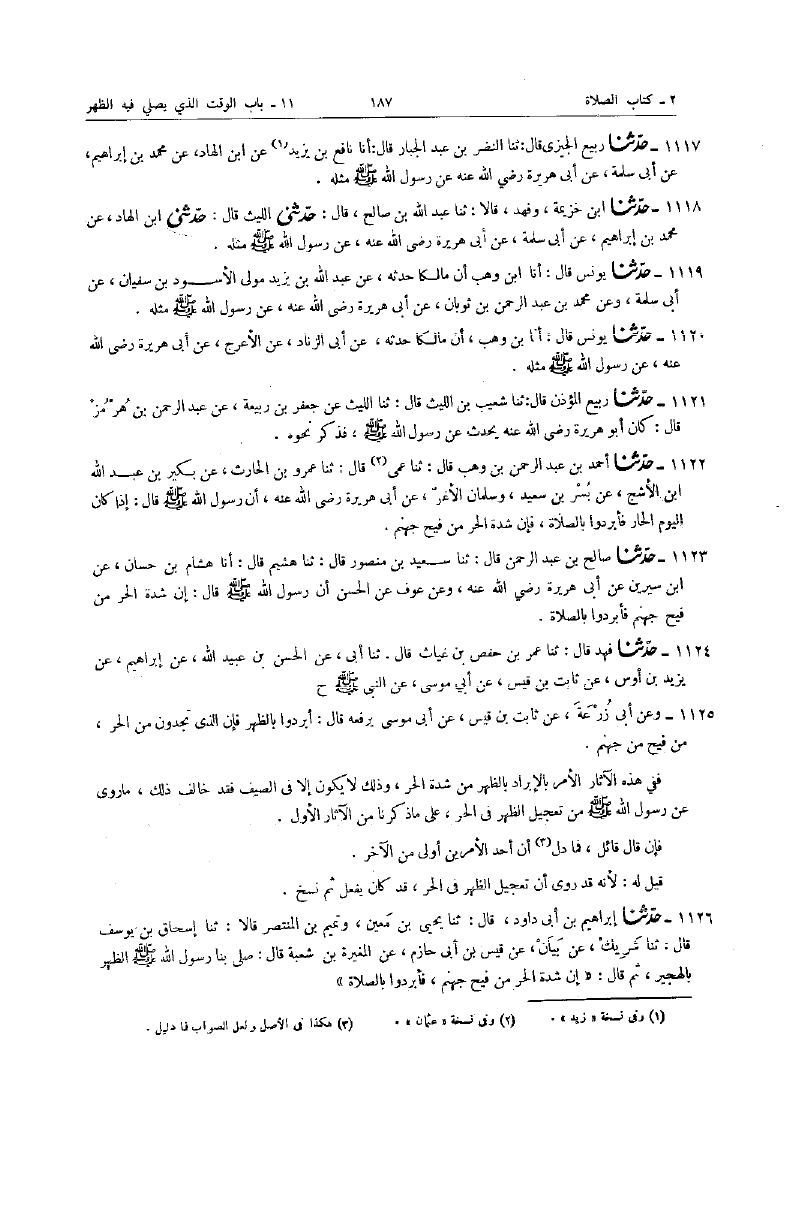 ٢ ـ كتاب الصلاة ١٨٧ ١١ ـ باب الوقت الذي يصلي فيه الظهر
١١١٧ ـ حدّثنا ربيع الجيزى قال: ثنا النضر بن عبد الجبار قال: أنا نافع بن يزيد(١) عن ابن الهاد، عن محمد بن إبراهيم،
عن أبى سلمة ، عن أبى هريرة رضي الله عنه عن رسول الله ﷺ مثله .
١١١٨ ـ حدّثنا ابن خزيمة ، وفهد ، قالا : ثنا عبد الله بن صالح ، قال : حدّثنى الليث قال : حدّثنى ابن الهاد، عن
محمد بن إبراهيم ، عن أبى سلمة ، عن أبى هريرة رضى الله عنه ، عن رسول الله ﷺ مثله .
١١١٩ ـ حدّثنا يونس قال : أنا ابن وهب أن مالكا حدثه ، عن عبد الله بن يزيد مولى الأسـود بن سفيان ، عن
أبى سلمة ، وعن محمد بن عبد الرحمن بن ثوبان ، عن أبى هريرة رضى الله عنه ، عن رسول الله ﷺ مثله .
١١٢٠ ـ حدّثنا يونس قال : أنا بن وهب ، أن مالكا حدثه ، عن أبى الزناد ، عن الأعرج ، عن أبى هريرة رضى الله
عنه ، عن رسول الله ﷺ مثله .
١١٢١ ـ حدّثنا ربيع المؤذن قال: ثنا شعيب بن الليث قال : ثنا الليث عن جعفر بن ربيعة ، عن عبد الرحمن بن هُرْمُزْ
قال : كان أبو هريرة رضى الله عنه يحدث عن رسول الله ﷺ ، فذكر نحوه .
١١٢٢ ـ حدّثنا أحمد بن عبد الرحمن بن وهب قال : ثنا عمى(٢) قال : ثنا عمرو بن الحارث، عن بكير بن عبـد الله
ابن الأشج ، عن بُسْر بن سعيد ، وسلمان الأغرّ ، عن أبى هريرة رضى الله عنه ، أن رسول الله ﷺ قال : إذا كان
اليوم الحار فأبردوا بالصلاة ، فإن شدة الحر من فيح جهنم .
١١٢٣ ـ حدّثنا صالح بن عبد الرحمن قال : ثنا سـعيد بن منصور قال : ثنا هشيم قال : أنا هشام بن حسان ، عن
ابن سيرين عن أبى هريرة رضي الله عنه ، وعن عوف عن الحسن أن رسول الله ﷺ قال : إن شدة الحر من
فيح جهنم فأبردوا بالصلاة .
١١٢٤ ـ حدّثنا فهد قال : ثنا عمر بن حفص بن غياث قال . ثنا أبى ، عن الحسن بن عبيد الله ، عن إبراهيم ، عن
يزيد بن أوس ، عن ثابت بن قيس ، عن أبي موسى ، عن النبى ﷺ ح
١١٢٥ ـ وعن أبى زُرْعَةَ ، عن ثابت بن قيس ، عن أبى موسى يرفعه قال : أبردوا بالظهر فإن الذى تجدون من الحر ،
من فيح من جهنم .
ففي هذه الآثار الأمر بالإبراد بالظهر من شدة الحر ، وذلك لا يكون إلا فى الصيف فقد خالف ذلك ، ماروى
عن رسول الله ﷺ من تعجيل الظهر فى الحر ، على ماذكرنا من الآثار الأول .
فإن قال قائل ، فما دل(٣) أن أحد الأمرين أولى من الآخر .
قيل له : لأنه قد روى أن تعجيل الظهر فى الحر ، قد كان يفعل ثم نسخ .
١١٢٦ ـ حدّثنا إبراهيم بن أبى داود ، قال : ثنا يحيى بن مَعين ، وتميم بن المنتصر قالا : ثنا إسحاق بن يوسف
قال : ثنا شَرِيكٌ ، عن بَيَانٌ ، عن قيس بن أبى حازم ، عن المغيرة بن شعبة قال : صلى بنا رسول الله ﷺ الظهر
بالهجير ، ثم قال : « إن شدة الحر من فيح جهنم ، فأبردوا بالصلاة »
(١) وفى نسخة « زيد » . (٢) وفى نسخة « عثمان » . (٣) هكذا فى الأصل ولعل الصواب فما دليل .